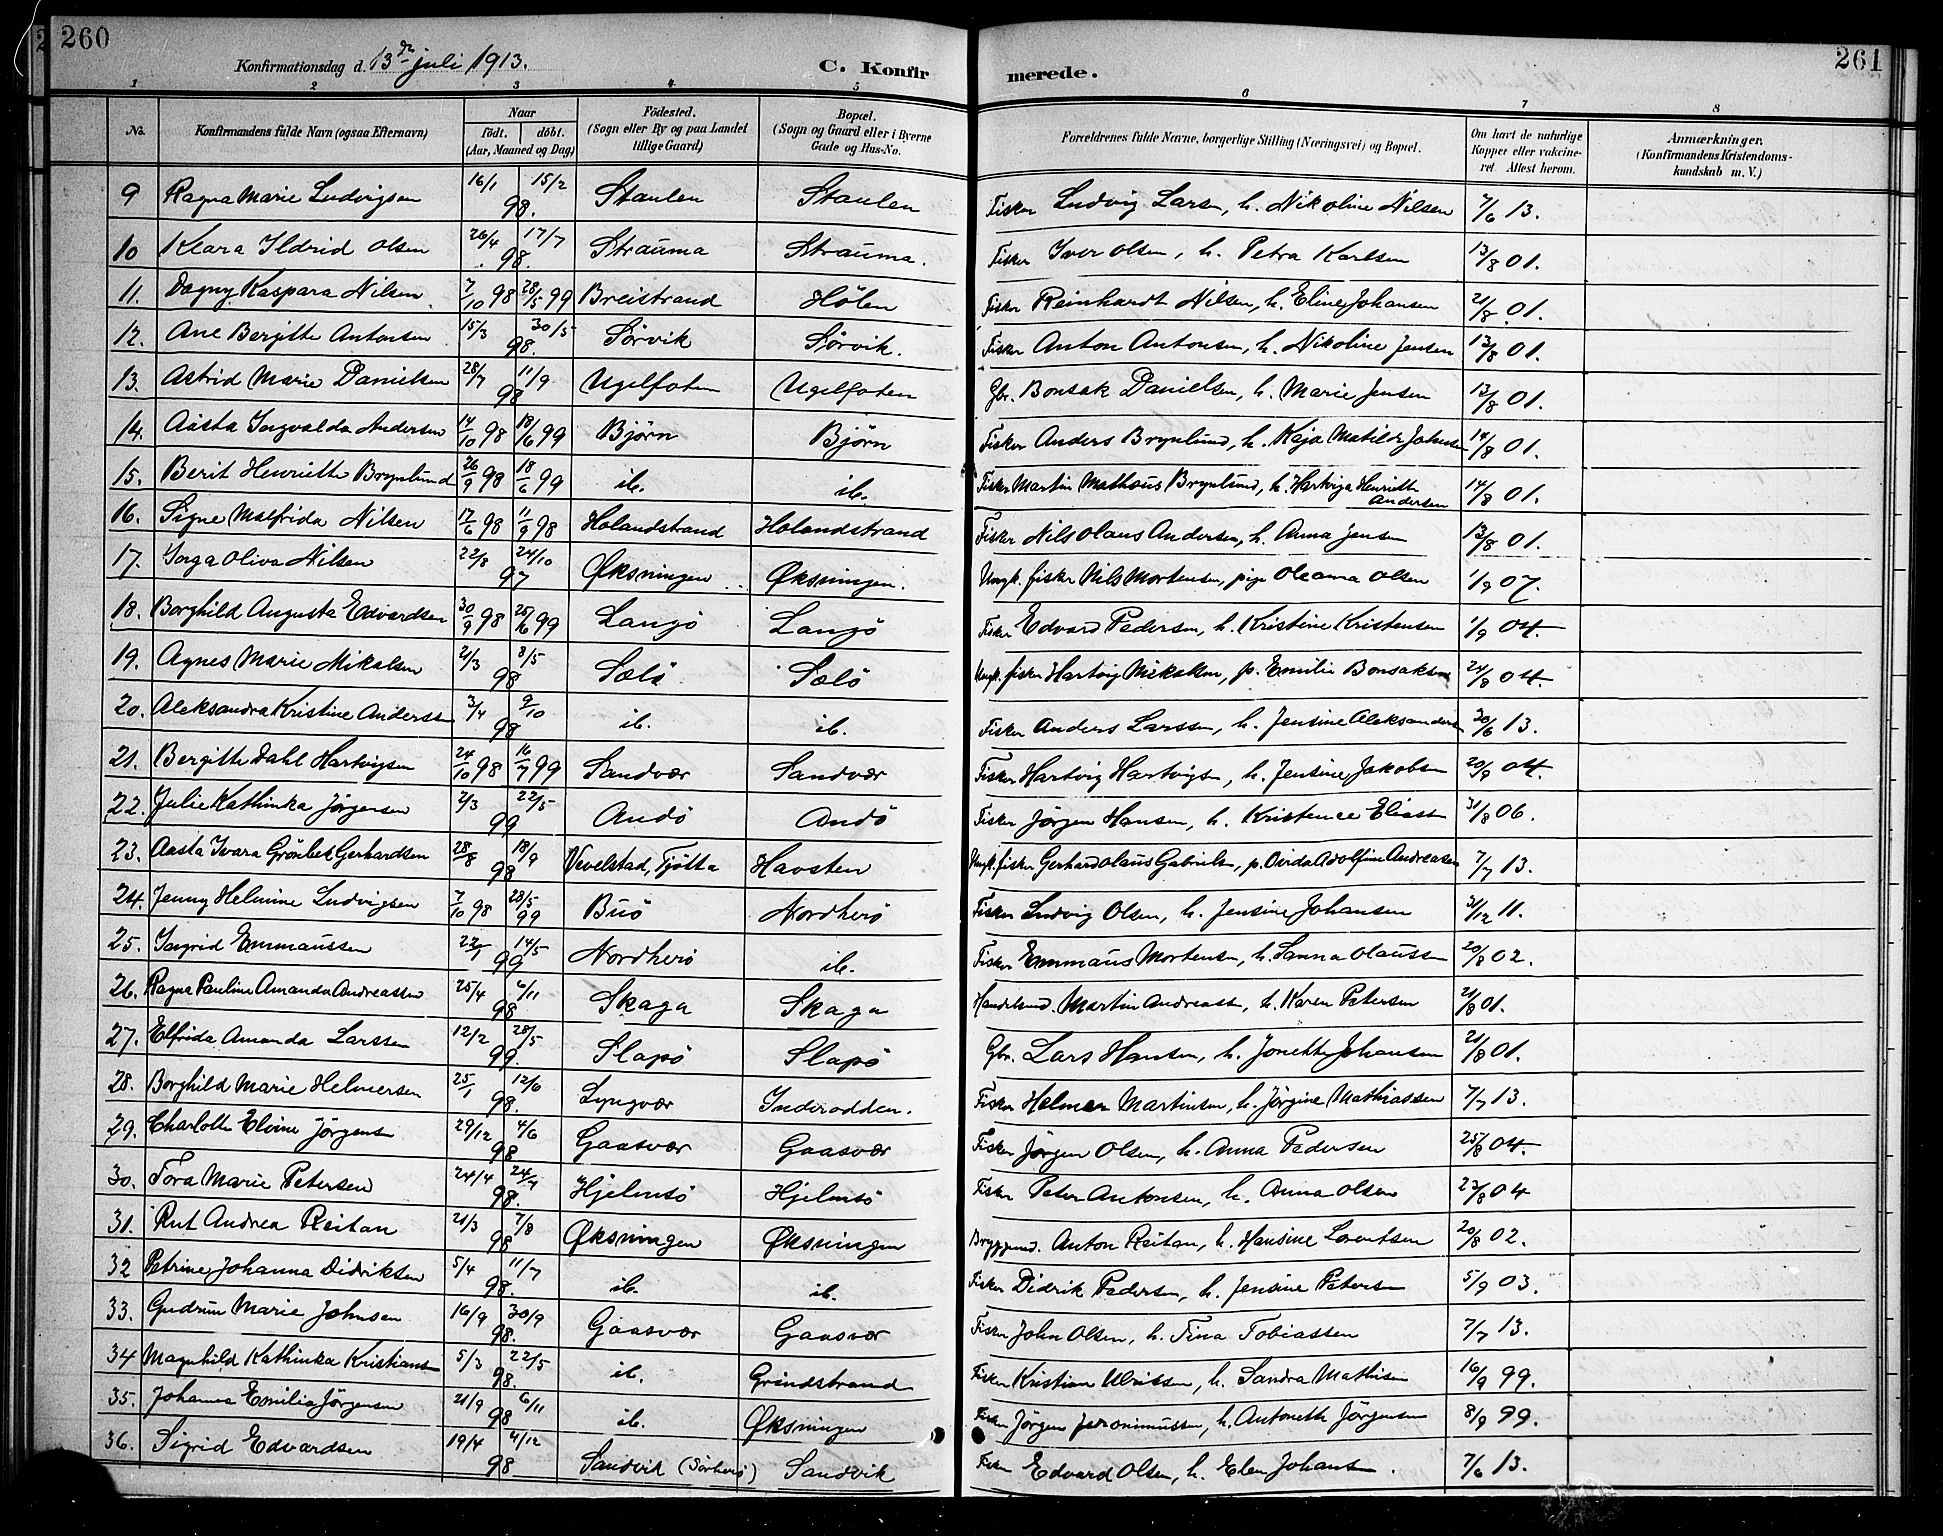 260
261
Konfirmationsdag d. 13de juli 1913.
C. Konfirmerede.
1 2 3 4 5 6 7 8
No.
Konfirmandens fulde Navn (ogsaa Efternavn)
Naar
födt. döbt.
(Aar, Maaned og Dag)
Födested.
(Sogn eller By og paa Landet
tillige Gaard)
Bopæl.
(Sogn og Gaard eller i Byerne
Gade og Hus-No.
Forældrenes fulde Navne, borgerlige Stilling (Næringsvei) og Bopæl.
Om havt de naturlige
Kopper eller vakcine-
ret Attest herom.
Anmærkninger,
(Konfirmandens Kristendoms-
kundskab m. V.)
9 Ragna Marie Ludvigsen 16/1 15/2 98. Staulen Staulen Fisker Ludvig Larsen, h. Nikoline Nilsen 7/6 13.
10 Klara Ildrid Olsen 26/4 17/7 98. Strauma Strauma. Fisker Iver Olsen, h. Petra Karlsen 13/8 01.
11. Dagny Kaspara Nilsen 7/10 98 28/5 99 Breistrand Hølen Fisker Reinhardt Nilsen, h. Eline Johansen 21/8 01.
12. Ane Bergitte Antonsen 15/3 30/5 98. Sørvik Sørvik. Fisker Anton Antonsen, h. Nikoline Jensen 13/8 01.
13. Astrid Marie Danielsen 28/7 11/9 98 Ugelfoten Ugelfoten Gbr. Bonsak Danielsen, h. Marie Jensen 13/8 01.
14. Aasta Ingvalda Andersen 14/10 98 18/6 99 Bjørn Bjørn Fisker Anders Brynlund, h. Kaja Matilde Johnsen 14/8 01.
15. Berit Henriette Brynlund 26/9 98 18/6 99 ib. ib. Fisker Martin Mathæus Brynlund, h. Hartviga Henriette Andersen 14/8 01.
16. Signe Malfrida Nilsen 17/6 98 11/9 98 Holandstrand Holandstrand Fisker Nils Olaus Andersen, h. Anna Jensen 13/8 01.
17. Inga Oliva Nilsen 22/8 24/10 97 Øksningen Øksningen. Ungk. fisker Nils Mortensen, pige Oleanna Olsen 1/9 07.
18. Borghild Augusta Edvardsen 30/9 98 25/6 99 Langö Langö Fisker Edvard Pedersen, h. Kristine Kristensen 1/9 04.
19. Agnes Marie Mikalsen 21/3 8/5 98 Sælö Sælö Ungk. fisker Hartvig Mikalsen, p. Emilie Bonsaksen 24/8 04.
20. Aleksandra Kristine Anderssen 3/4 9/10 98 ib. ib. Fisker Anders Larssen, h. Jensine Aleksandersen 30/6 13.
21. Bergitte Dahl Hartvigsen 24/10 98 16/7 99 Sandvær Sandvær Fisker Hartvig Hartvigsen, h. Jensine Jakobsen 20/9 04.
22. Julie Kathinka Jørgensen 2/3 22/5 99 Andö Andö Fisker Jørgen Hansen, h. Kristence Eliassen 31/8 06.
23. Aasta Ivara Grönbek Gerhardsen 28/8 18/9 98 Vevelstad, Tjøtta Havsten Ungk. fisker Gerhard Olaus Gabrielsen, p. Ovida Adolfine Andreassen 7/7 13.
24. Jenny Helmine Ludvigsen 7/10 98 28/5 99 Buö Nordherö Fisker Ludvig Olsen, h. Jensine Johansen 31/12 11.
25. Ingrid Emmaussen 22/1 14/5 99 Nordherö ib. Fisker Emmaus Mortensen, h. Sanna Olaussen 20/8 02.
26. Ragna Pauline Amanda Andreassen 25/4 6/11 98 Skaga Skaga Handelsmd. Martin Andreassen, h. Karen Petersen 21/8 01.
27. Elfrida Amanda Larssen 12/2 28/5 99. Slapö Slapö Gbr. Lars Hansen, h. Jonette Johansen 21/8 01.
28. Borghild Marie Helmersen 25/1 12/6 98. Lyngvær Inderodden. Fisker Helmer Martinsen, h. Jörgine Mathiassen 7/7 13.
29. Charlotte Elvine Jörgensen 29/12 4/6 98 Gaasvær Gaasvær Fisker Jörgen Olsen, h. Anna Pedersen 25/8 04.
30. Tora Marie Petersen 24/4 24/7 98. Hjelmsö Hjelmsö Fisker Peter Antonsen, h. Anna Olsen 23/8 04
31. Rut Andrea Reitan 21/3 7/8 98 Øksningen Øksningen Bryggemd. Anton Reitan, h. Hansine Lorentsen 20/8 02.
32 Petrine Johanna Didriksen 5/4 11/7 98. ib. ib. Fisker Didrik Pedersen, h. Jensine Petersen 5/9 03.
33. Gudrun Marie Johnsen 16/9 30/9 98. Gaasvær Gaasvær Fisker John Olsen, h. Tina Tobiassen 7/7 13.
34 Magnhild Kathinka Kristiansen 5/3 22/5 98. ib. Grindstrand Fisker Kristian Ulrikssen, h. Sandra Mathisen 16/9 99.
35. Johanna Emilie Jörgensen 21/9 6/11 98 ib. Øksningen Fisker Jörgen Jeronimussen, h. Antonette Jörgensen 8/9 99.
36. Sigrid Edvardsen 19/4 4/12 98 Sandvik (Sörherö) Sandvik Fisker Edvard Olsen, h. Elen Johansen. 7/6 13.